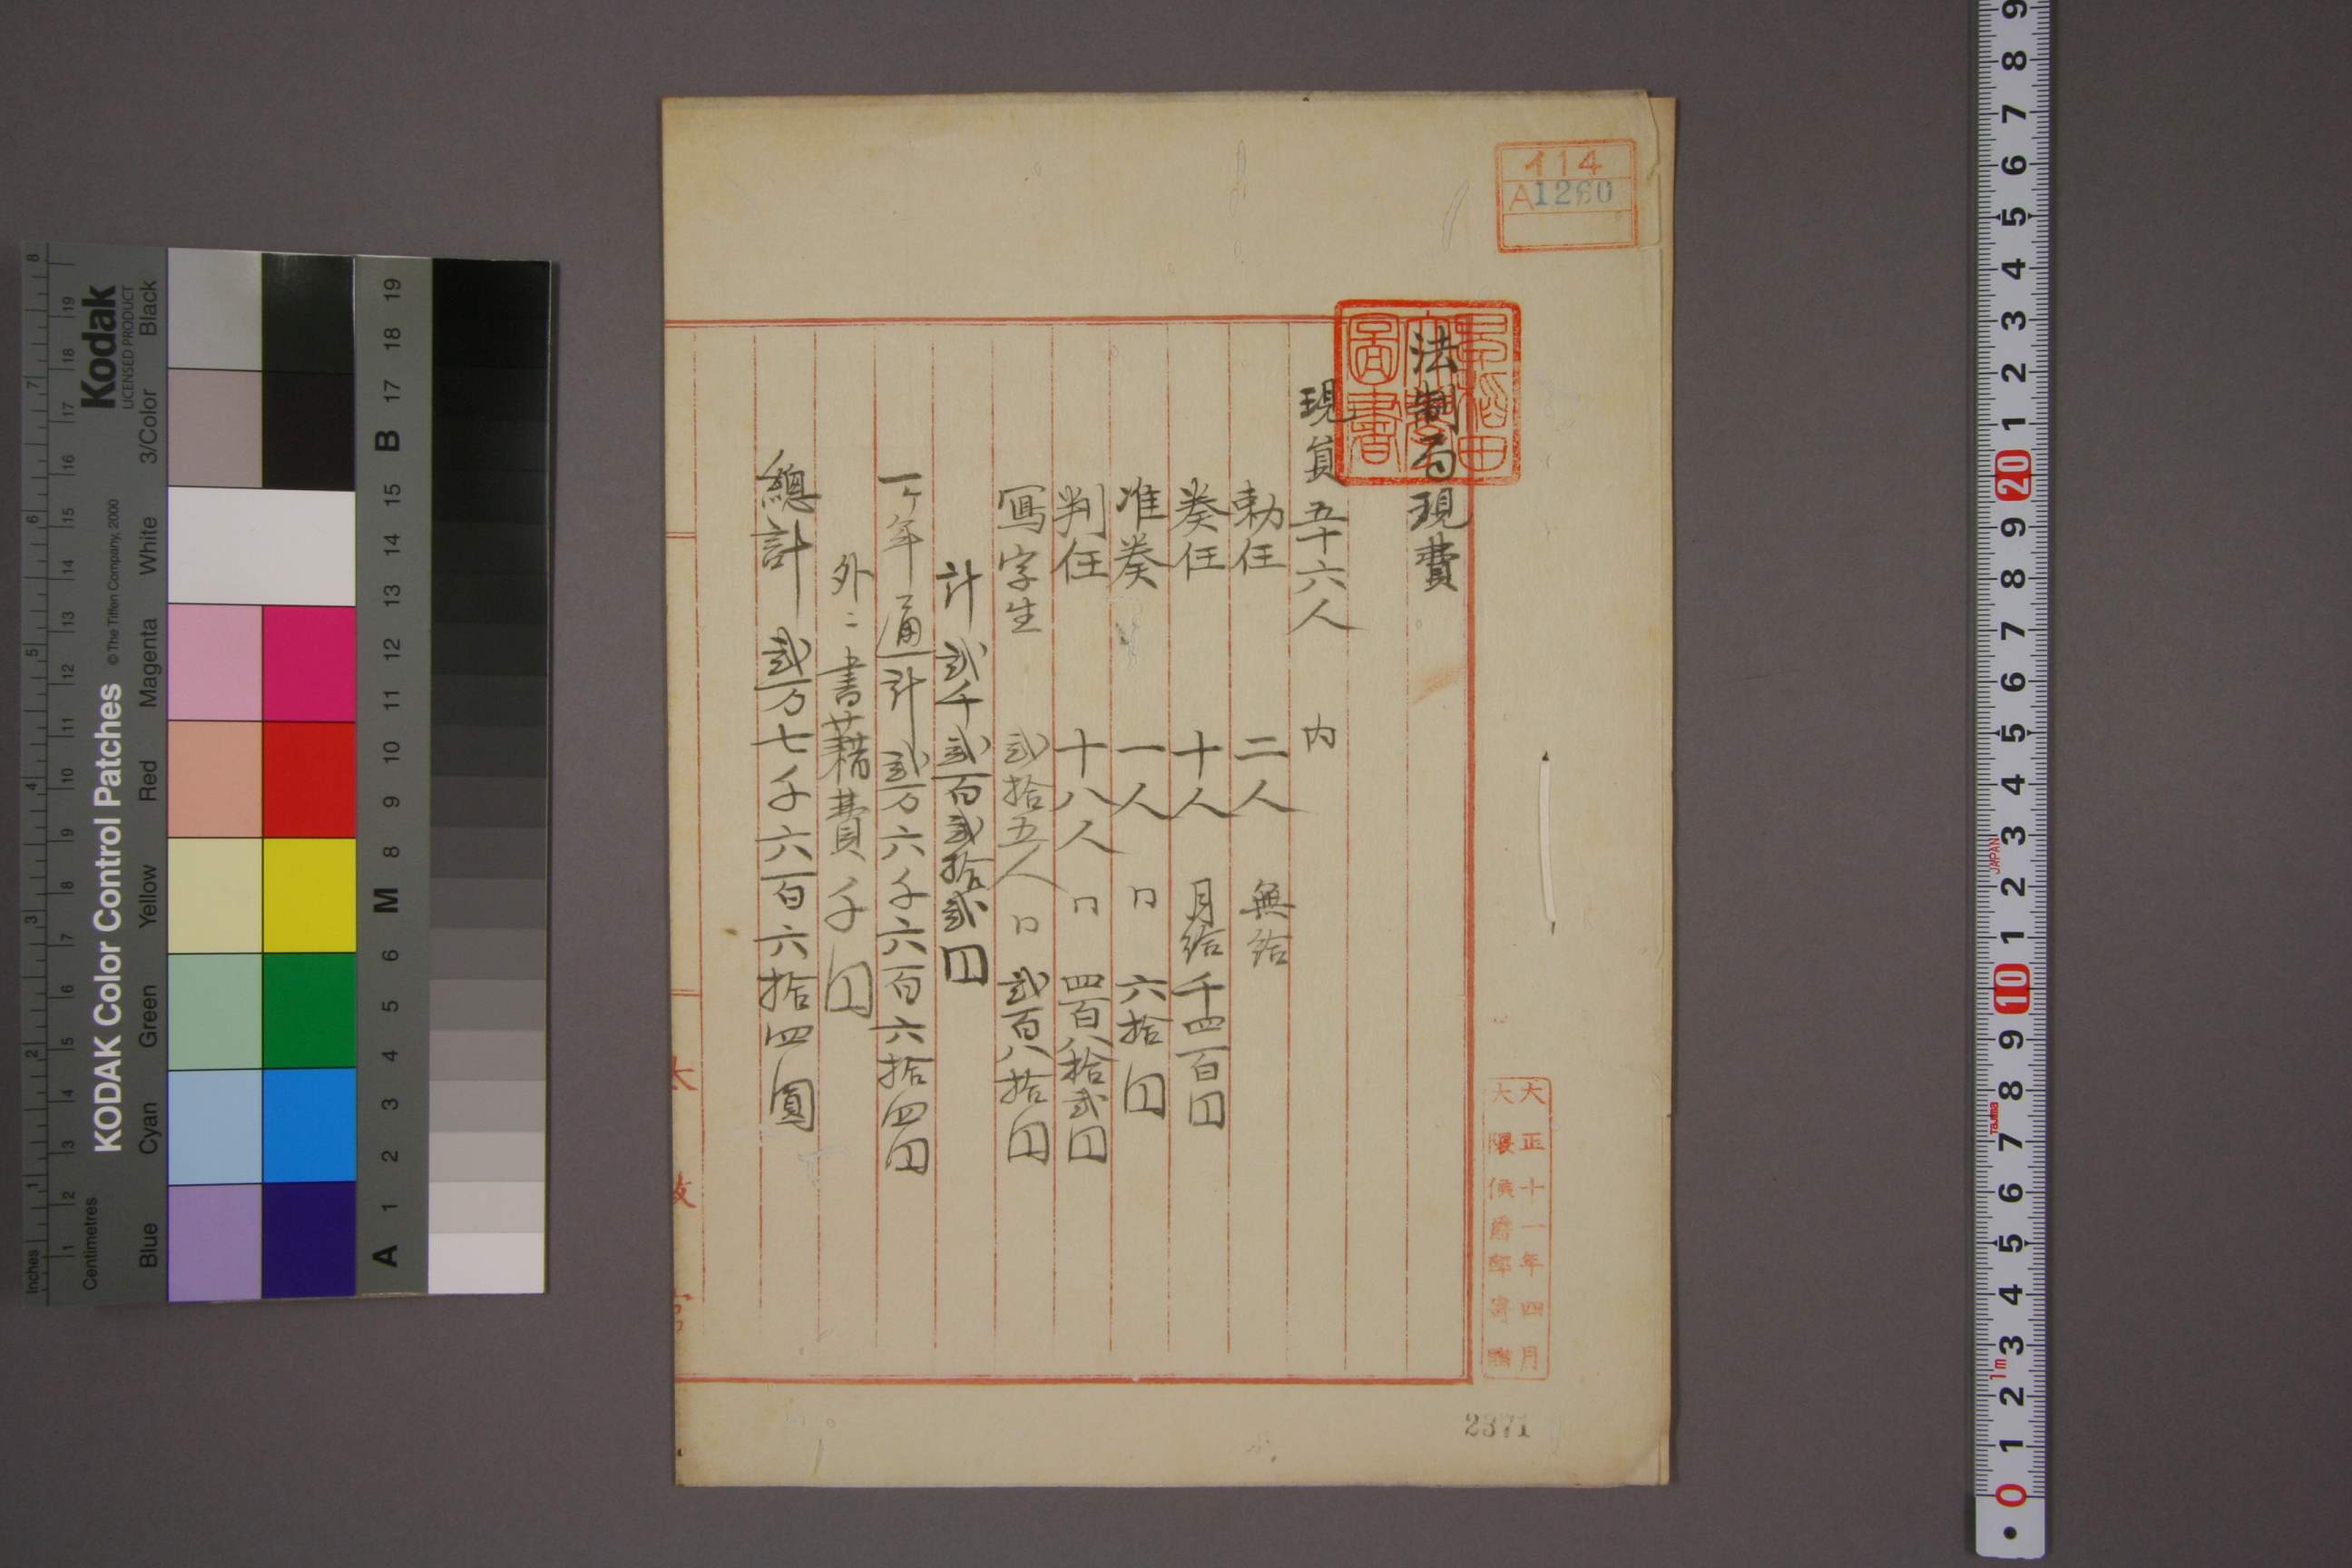 法制局現費
現員五十六人　内
勅任　二人　無給
奏任　十人　月給千四百円
准奏　一人　〃　六拾円
判任　十八人　〃　四百八拾弐円
写字生　弐拾五人　〃　弐百八拾円
計　弐千弐百弐拾弐円
一ケ年通計　弐万六千六百六拾四円
外ニ書籍費千円
總計　弐万七千六百六拾四圓
イ14
A1260
早稲田
大學
圖書
大正十一年四月
大隈侯爵邸寄贈
2371
KODAK Color Control Patches
© The Tiffen Company, 2000
Kodak
LICENSED PRODUCT
Inches
Centimetres
Blue
Cyan
Green
Yellow
Red
Magenta
White
3/Color
Black
A 1 2 3 4 5 6 M 8 9 10 11 12 13 14 15 B 17 18 19
JAPAN
Tajima
1m